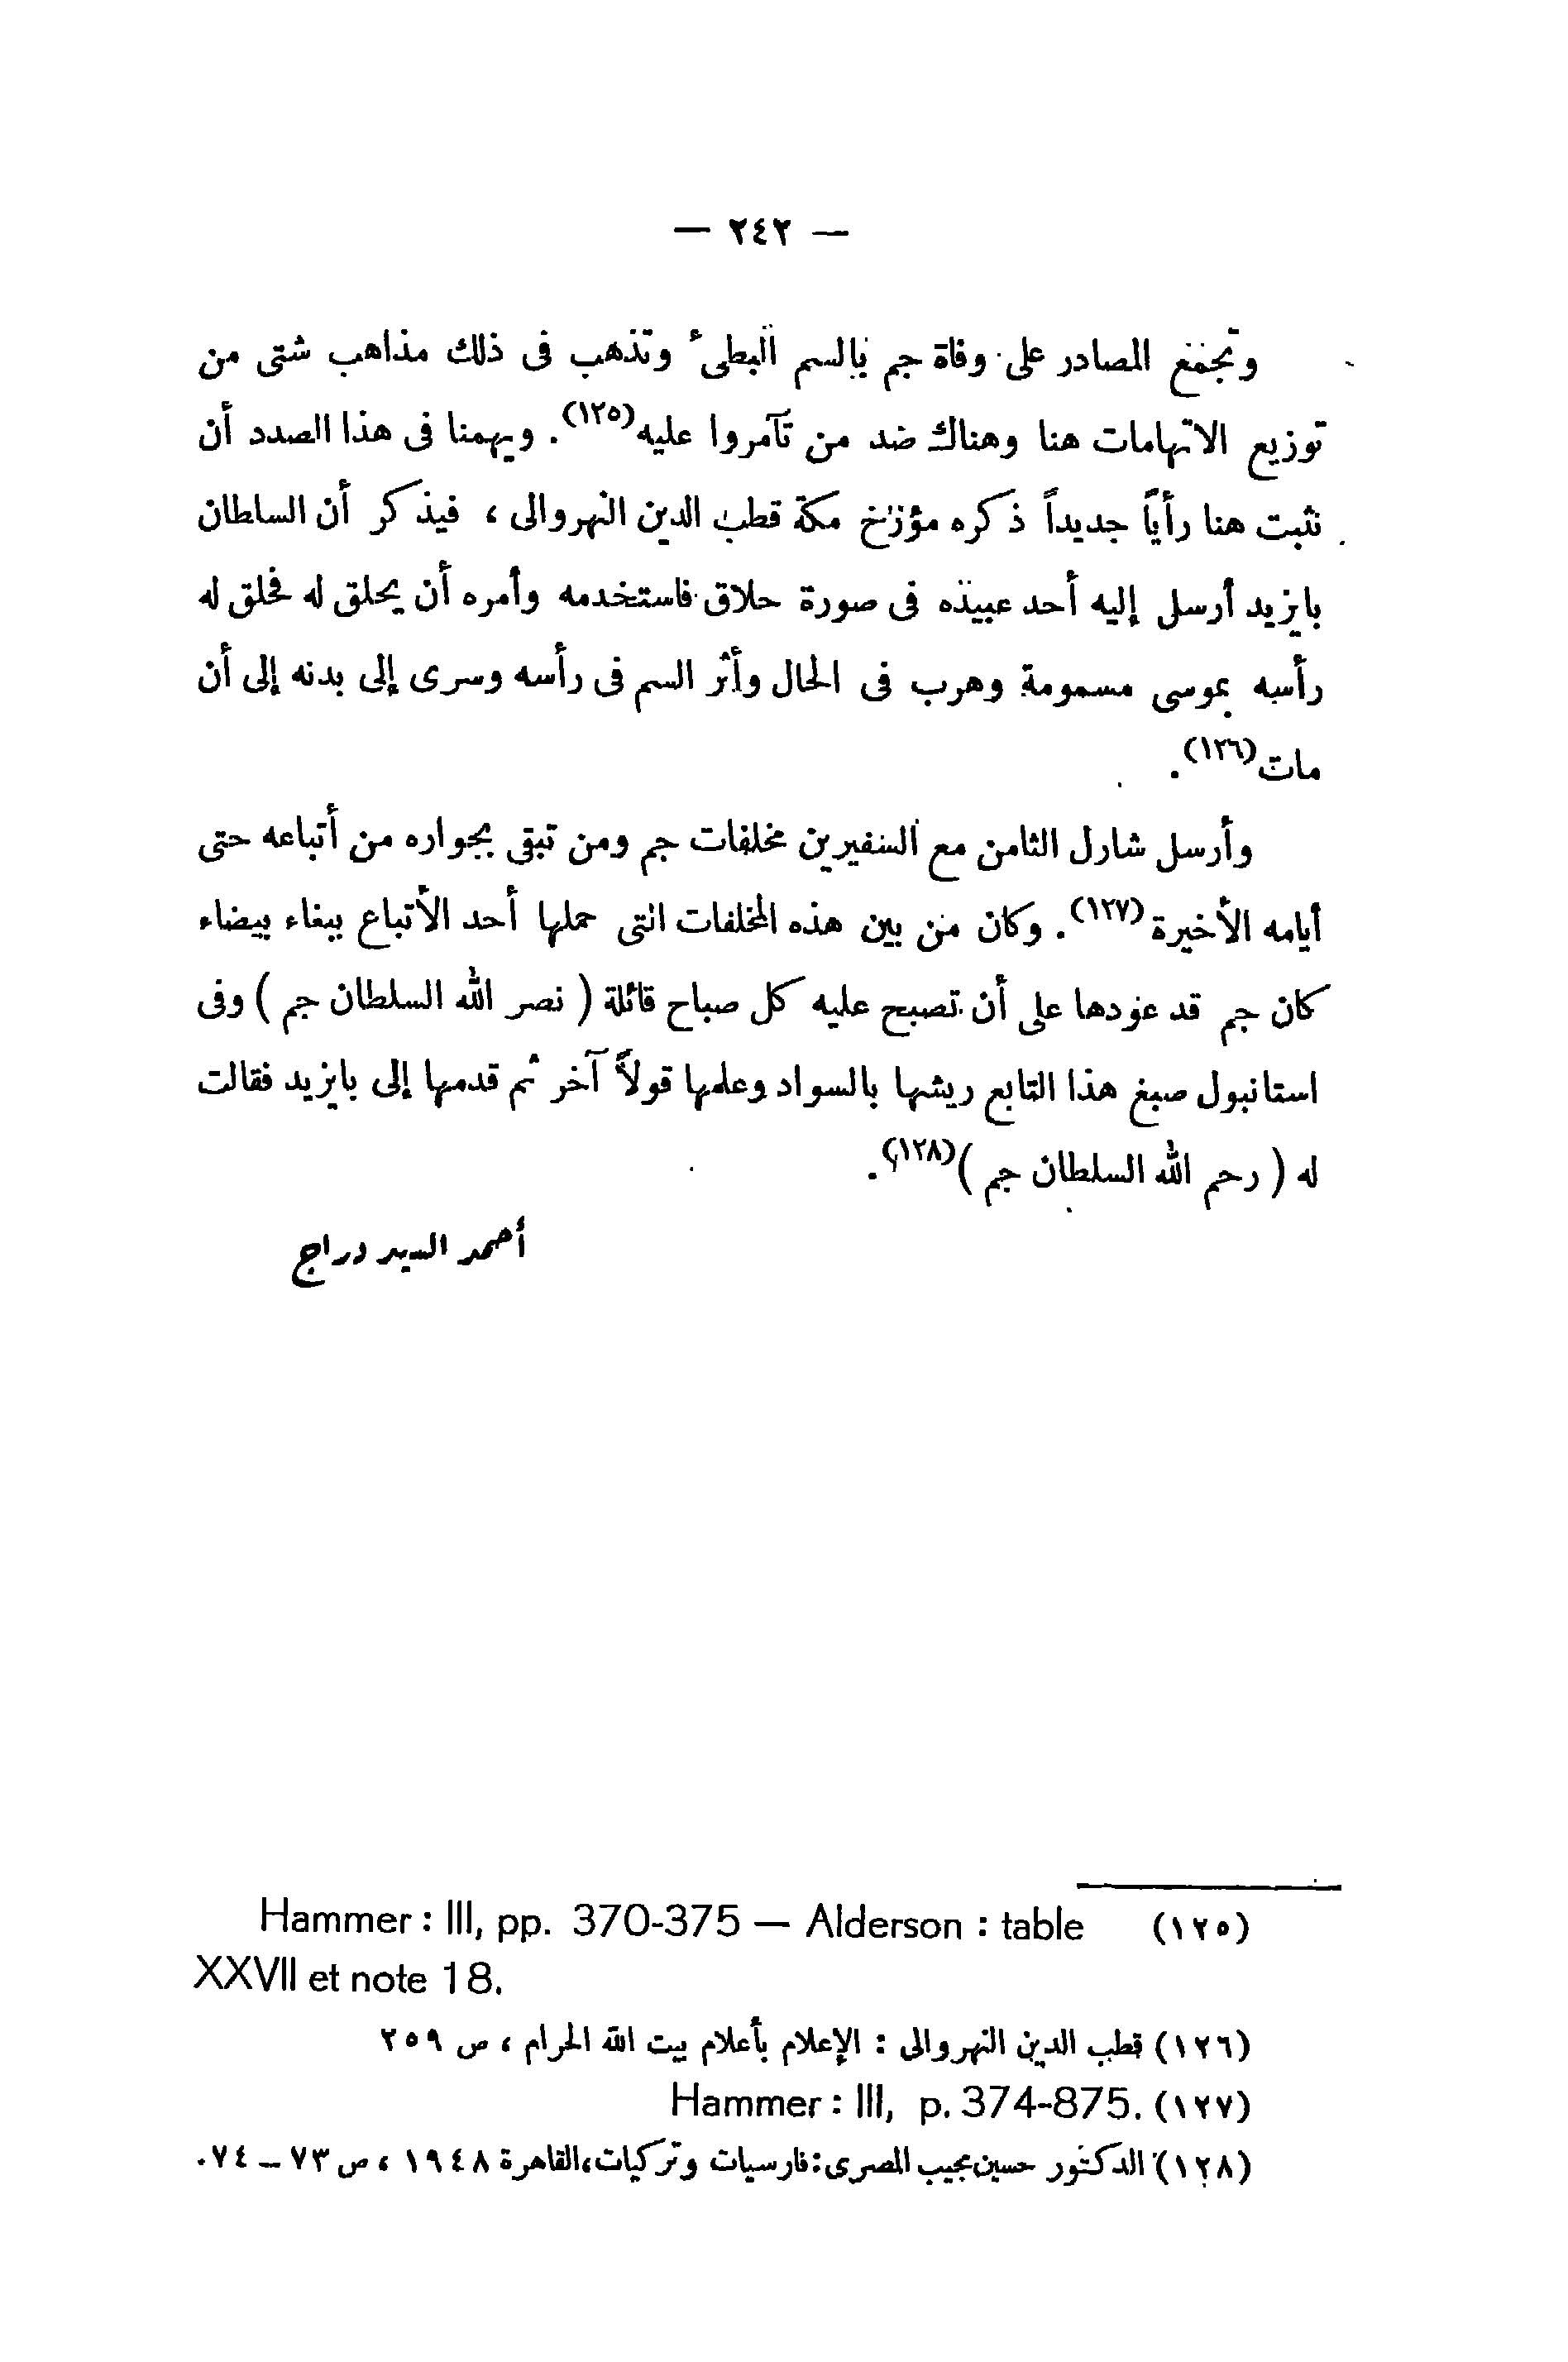 — ٢٤٢ —
وتجمع المصادر على وفاة جم بالسم البطىء وتذهب فى ذلك مذاهب شتى من
توزيع الاتهامات هنا وهناك ضد من تآمروا عليه(١٢٥). ويهمنا فى هذا الصدد أن
نثبت هنا رأياً جديداً ذكره مؤرخ مكة قطب الدين النهروالى ، فيذكر أن السلطان
بايزيد أرسل إليه أحد عبيده فى صورة حلاق فاستخدمه وأمره أن يحلق له فحلق له
رأسه بموسى مسمومة وهرب فى الحال وأثر السم فى رأسه وسرى إلى بدنه إلى أن
مات(١٢٦).
وأرسل شارل الثامن مع السفيرين مخلفات جم ومن تبقى بجواره من أتباعه حتى
أيامه الأخيرة(١٢٧). وكان من بين هذه المخلفات التى حملها أحد الأتباع ببغاء بيضاء
كان جم قد عودها على أن تصبح عليه كل صباح قائلة ( نصر الله السلطان جم ) وفى
استانبول صبغ هذا التابع ريشها بالسواد وعلمها قولاً آخر ثم قدمها إلى بايزيد فقالت
له ( رحم الله السلطان جم )(١٢٨).
أحمد السيد دراج
(١٢٥) Hammer : III, pp. 370-375 — Alderson : table
XXVII et note 18.
(١٢٦) قطب الدين النهروالى : الإعلام بأعلام بيت الله الحرام ، ص ٢٥٩
(١٢٧) Hammer : III, p. 374-875.
(١٢٨) الدكتور حسين مجيب المصرى : فارسيات وتركيات ، القاهرة ١٩٤٨ ، ص ٧٣ – ٧٤.